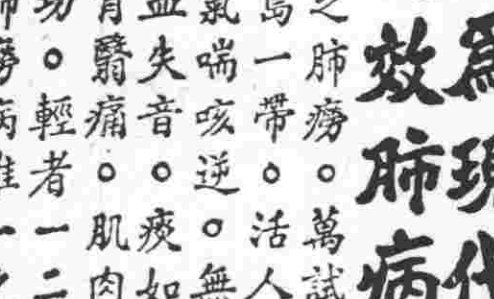 為現代
效肺病
之肺癆。萬試
島一帶。活人
氣喘咳逆。無
血失音。痰如
翳痛。肌肉
功。輕者一二
肺癆病